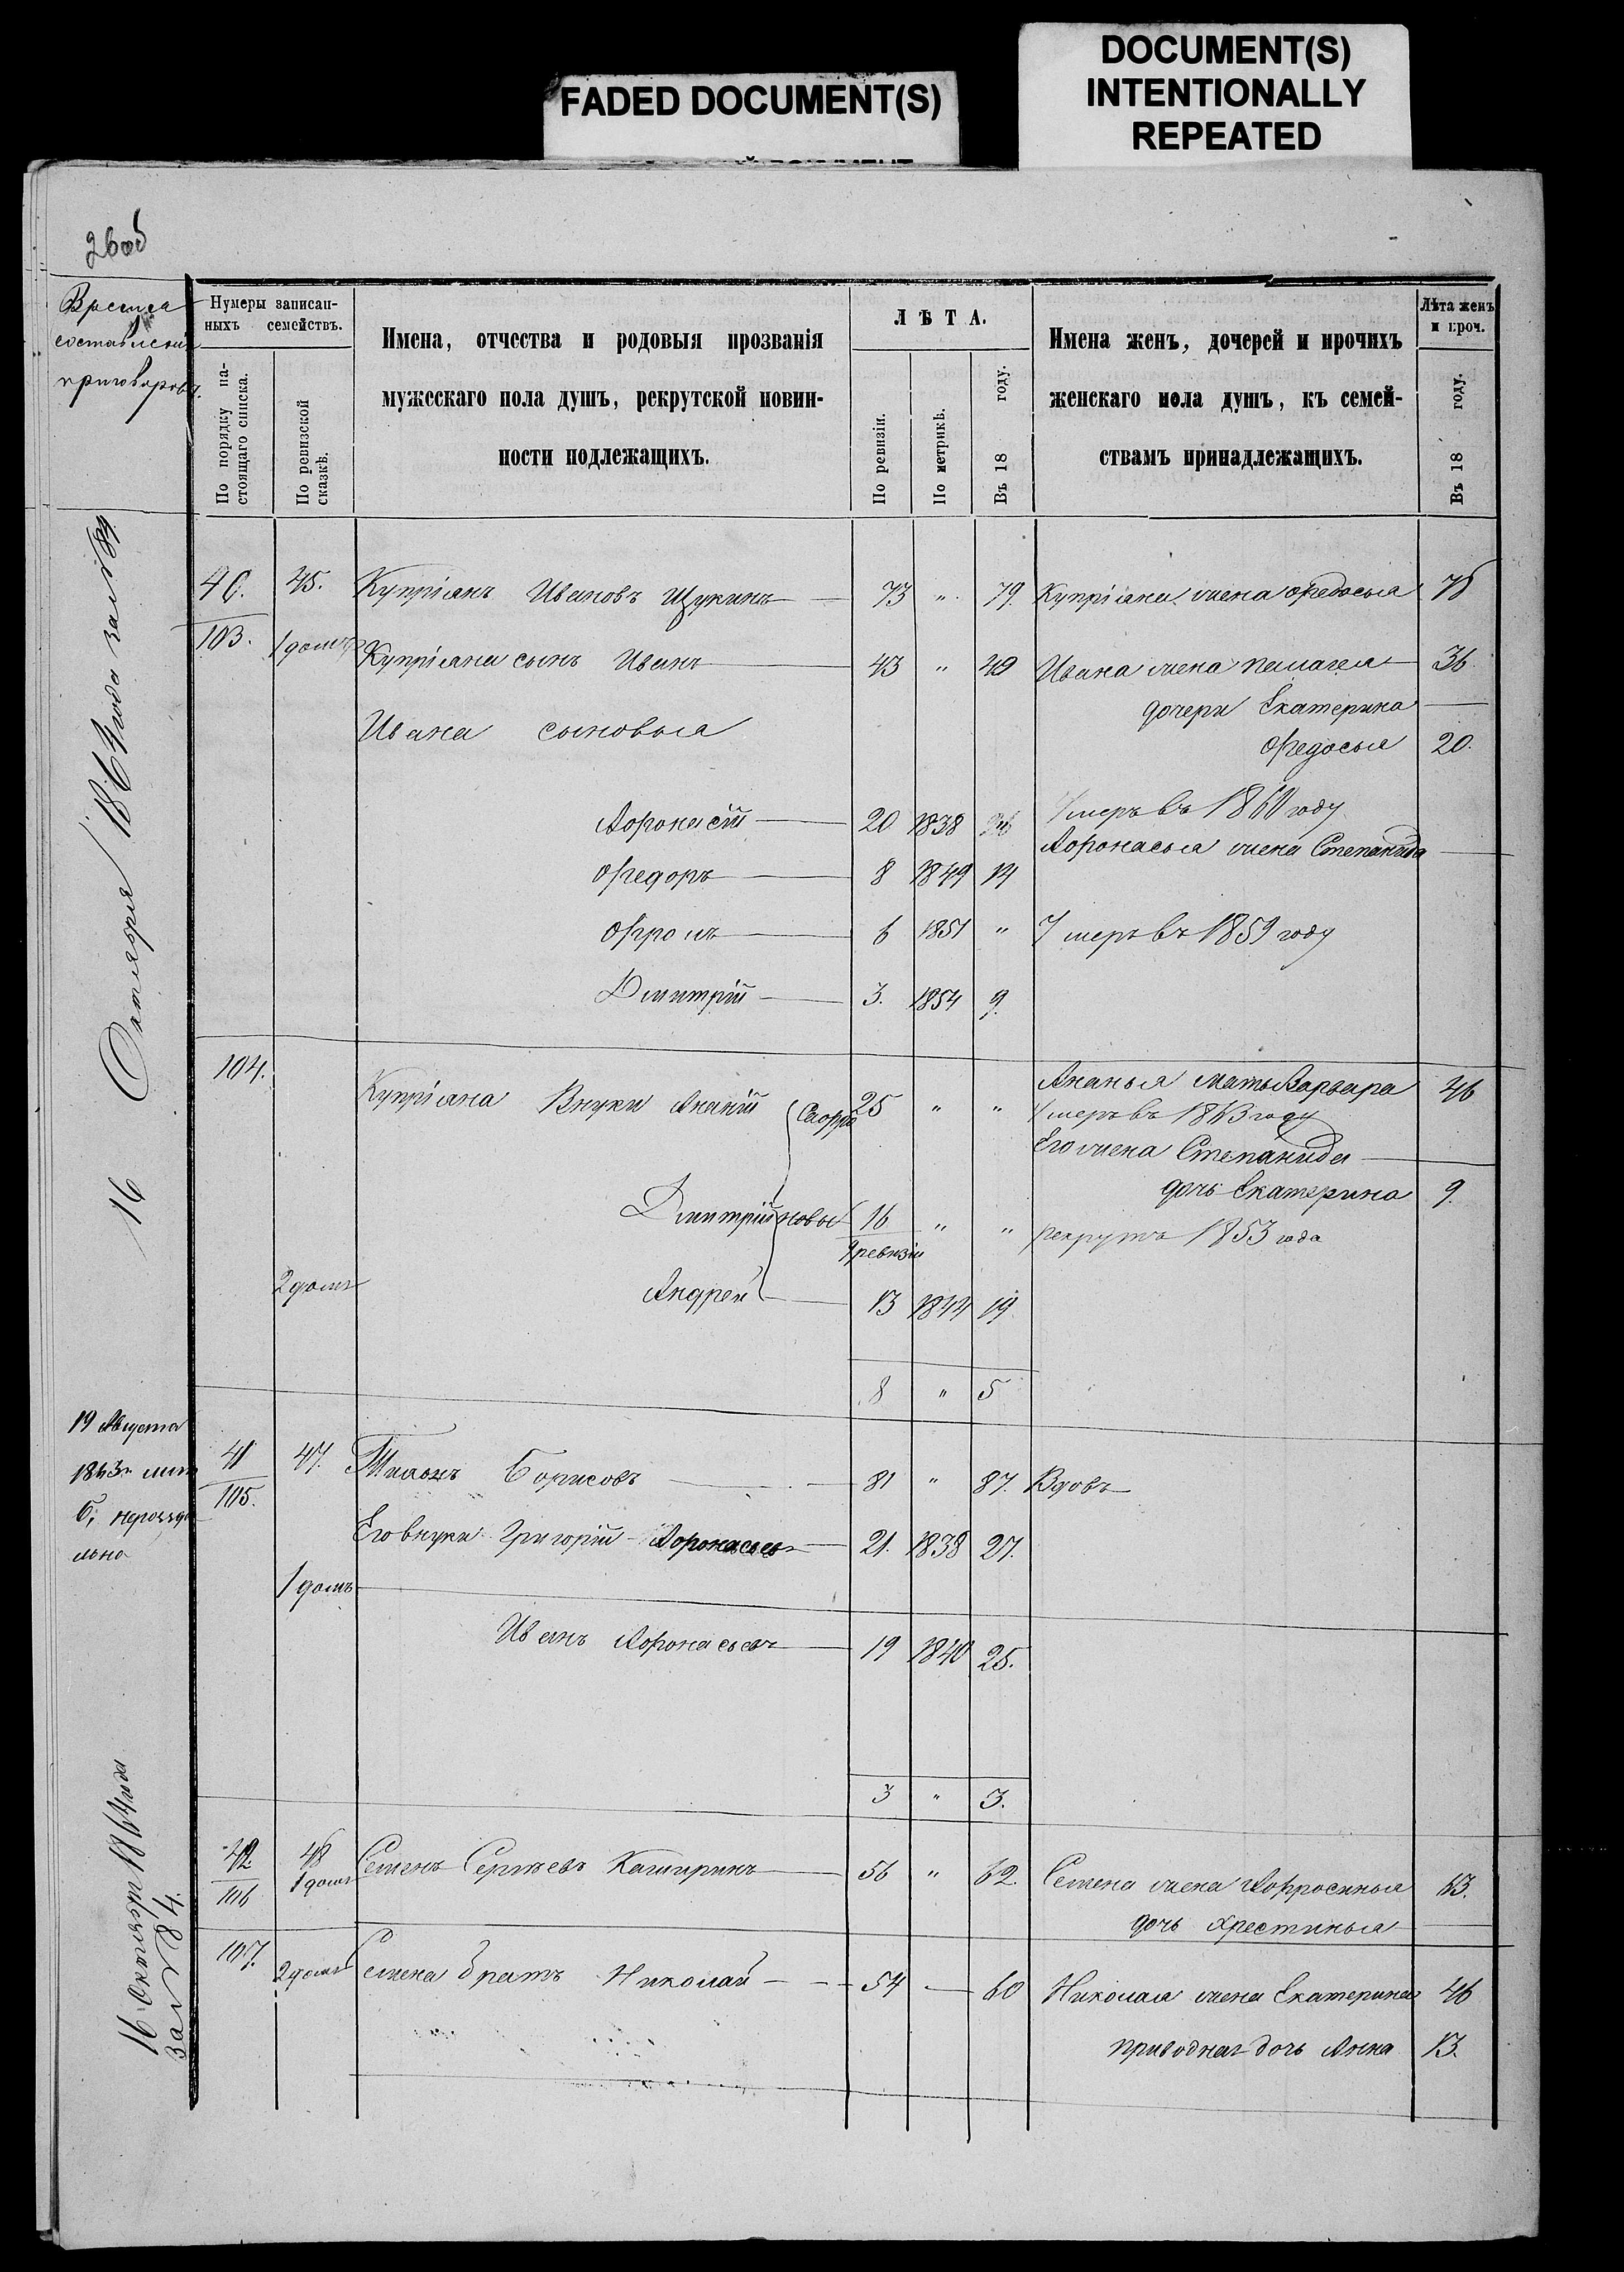 FADED DOCUMENT(S)
DOCUMENT(S)
INTENTIONALLY
REPEATED
26об
Время
составленія
приговоровъ.
Нумеры записан-
ныхъ семействъ.
По порядку на-
стоящаго списка.
По ревизской
сказкѣ.
Имена, отчества и родовыя прозванія
мужескаго пола душъ, рекрутской повин-
ности подлежащихъ.
ЛѢТА.
По ревизіи.
По метрикѣ.
Въ 18 году.
Имена женъ, дочерей и прочихъ
женскаго пола душъ, къ семей-
ствамъ принадлежащихъ.
Лѣта женъ
и проч.
Въ 18 году.
16 Октября 1864 года за № 84
40. 45. Купріянъ Ивановъ Щукинъ 73 " 79. Купріяна жена Федосья 78
103. 1 домъ Купріяна сынъ Иванъ 43 " 49 Ивана жена Пелагея 36
дочери Екатерина —
Ивана сыновья
Федосья 20.
Афонасій 20 1838 26 Умеръ въ 1860 году
Афонасья жена Степанида —
Федоръ 8 1849 14
Фролъ 6 1851 " Умеръ въ 1859 году
Дмитрій 3. 1854 9.
104. Ананья мать Варвара 46
Купріяна Внуки Ананій 25 " " Умеръ въ 1863 году
Его жена Степанида —
дочь Екатерина 9.
Дмитрій 16 " " рекрутъ 1853 года
9 ревизіи
2 домъ Андрей 13 1844 19
8 " 5
19 Августа
1863 г.
41 47. Борисовъ 81 " 87. Вдовъ
105.
Его внуки Григорій Афонасьевъ 21. 1838 27.
1 домъ
Иванъ Афонасьевъ 19 1840 25.
3 " 3.
16 Октября 1864 года
за № 84.
42 48 Семенъ Сергѣевъ Каширинъ 56 " 62. Семена жена Афросинья 63.
106 1 домъ
дочь Хрестинья —
107. 2 домъ Семена братъ Николай 54 — 60 Николая жена Екатерина 46
приводная дочь Анна 13.